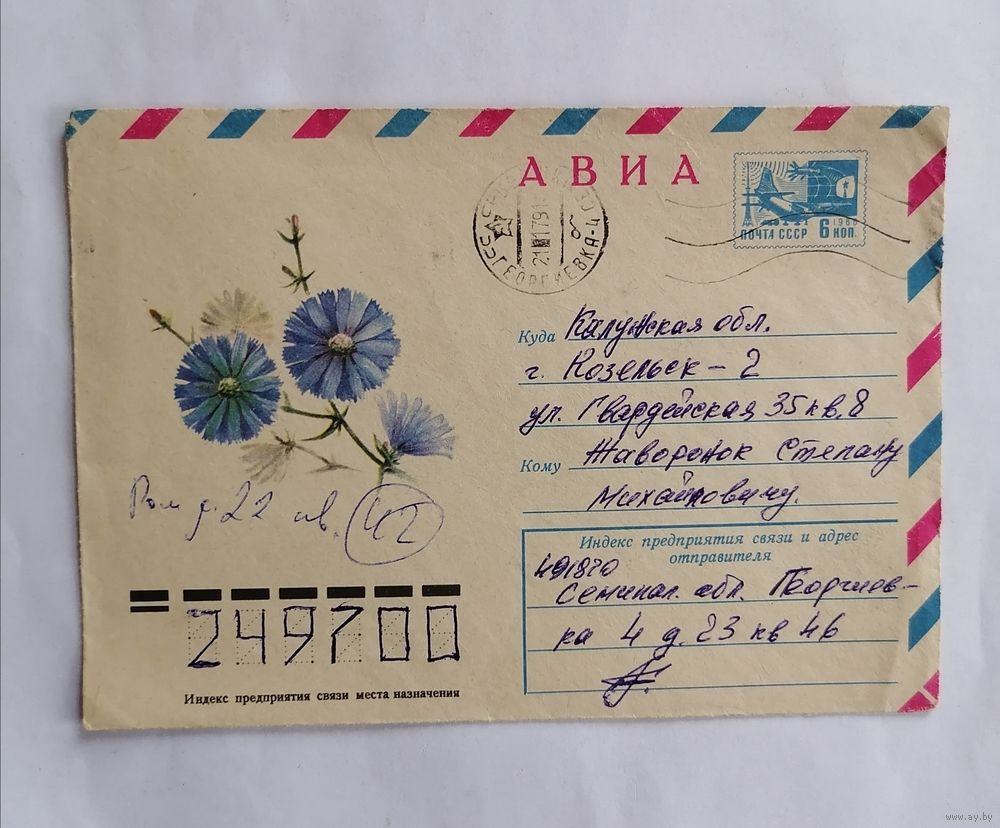 АВИА
ПОЧТА СССР 6 КОП.
1966
ГЕОРГИЕВКА-4
Куда Калужская обл.
г. Козельск – 2
ул. Гвардейская 35 кв. 8
Кому Жаворонок Степану
Михайловичу.
22 кв. 42
Индекс предприятия связи и адрес
отправителя
491870
Семипал. обл. Георгиев-
ка 4 д. 23 кв 46
249700
Индекс предприятия связи места назначения
www.ay.by